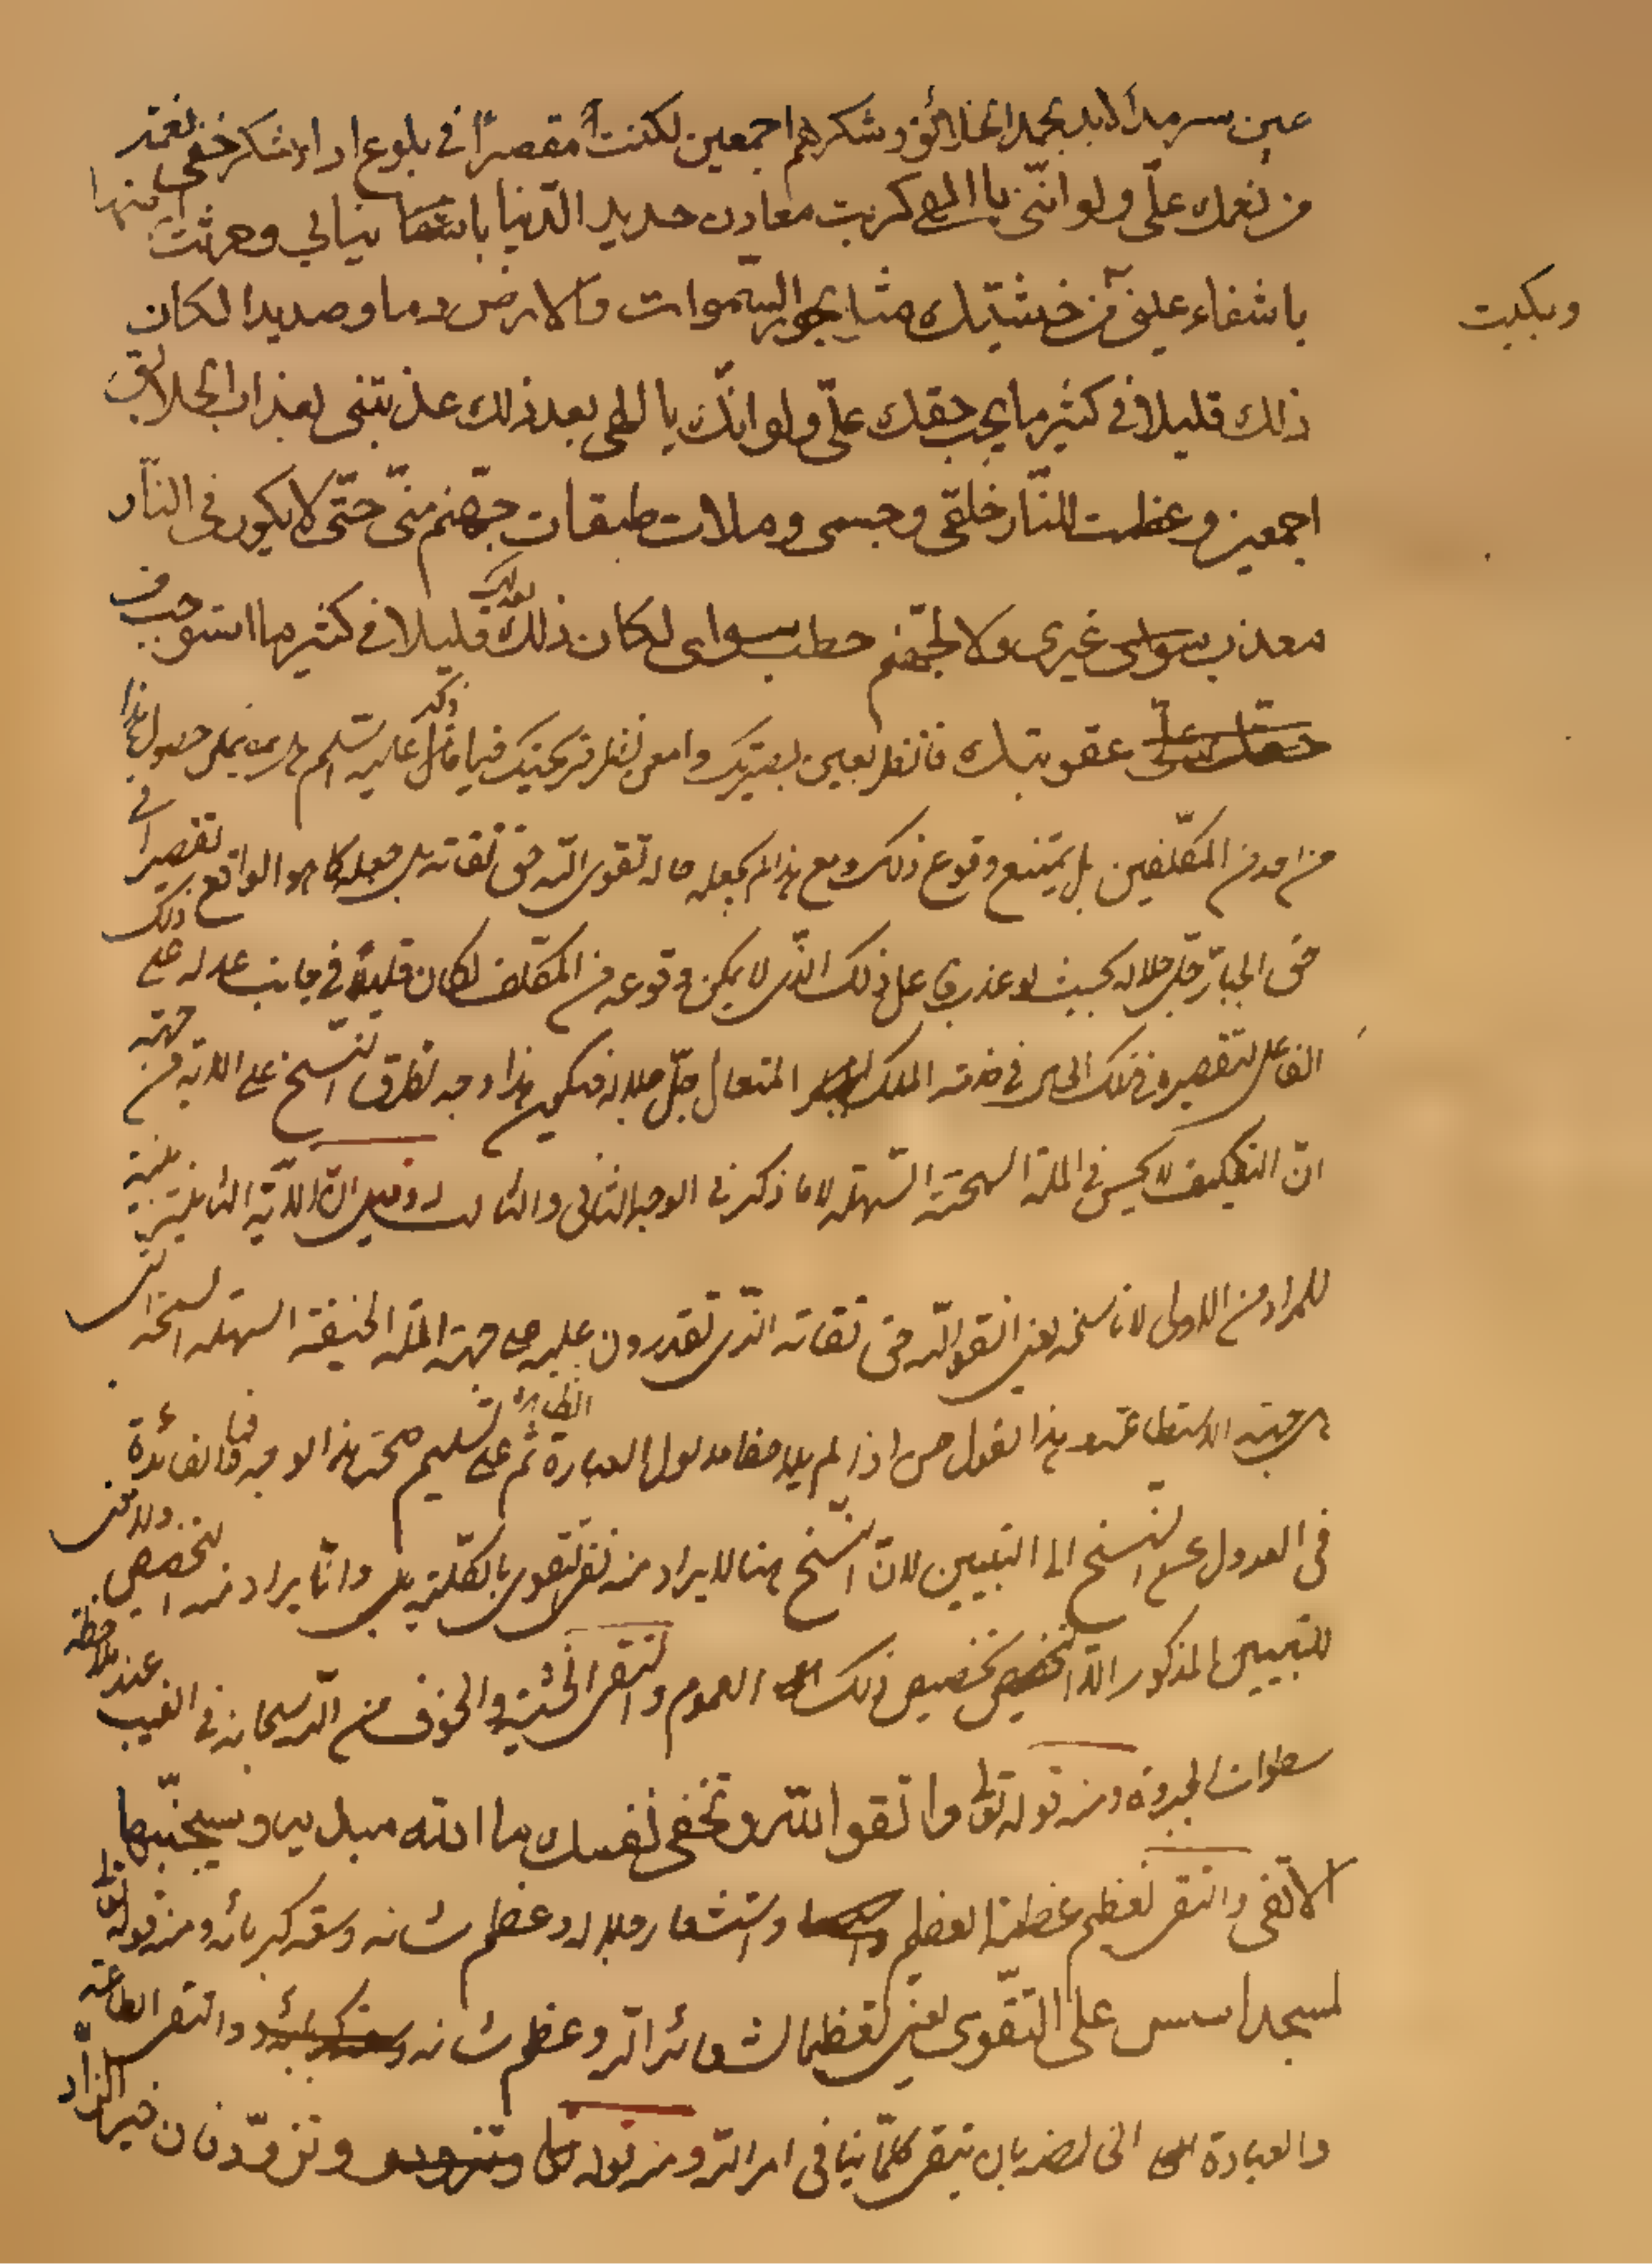 عين سرمد الابد بحمد الخلائق وشكرهم اجمعين لكنت مقصرًا في بلوغ اداء شكر خفي نعمة
من نعمك علىّ ولو انّنى يا الهى كربت معادن حديد الدّنيا بانيابي وحرثت ارضها
باشفار عينى من خشيتك مثل بحور السّموات والارض دما وصديدا لكان
وبكيت
ذلك قليلا فى كثير ما يجب حقك علىّ ولو انّك يا الهى بعد ذلك عذبتنى بعذاب الخلائق
اجمعين وعظمت للنّار خلقى وجسمى وملات طبقات جهنّم منّى حتّى لا يكون فى النّار
معذب غيرى ولا لجهنّم حطب سواى لكان ذلك بعدلك قليلا فى كثير ما استوجب من
عقوبتك فانظر بعين بصيرتك وامعن نظر قريحتك فيما ذكر عليه السّلم هل يمكن حصول هذا
من احد من المكلّفين بل يمتنع وقوع ذلك ومع هذا لم يجعله مما له تقوى اللّه حق تقاته بل جعله كما هو الواقع تقصيرا فى
حق الجبّار جلّ جلاله بحيث لو عذب على ذلك الّذى لا يمكن وقوعه من المكلّف لكان ذلك قليلا فى جانب عدله على
الفاعل لتقصيره فى ذلك فى خدمة الملك المتعال جلّ جلاله فيكون هذا وجه تطرق النّسخ على الاية من جهة
انّ التكليف لا يحسن فى الملة السمحة السّهلة لا ما ذكر فى الوجه الثانى والثالث وقيل انّ الاية الثانية مبينة
للمراد من الاولى لا ناسخة يعنى اتقوا اللّه حق تقاته الّذى تقدرون عليه من جهة الملة الحنيفة السهلة السمحة
من جهة الاستطاعة وهذا القول حسن اذا لم يلاحظ مدلول العبارة الظاهرة ثم على تسليم صحة هذا الوجه فما الفائدة
فى العدول عن النسخ الى التبيين لانّ النّسخ هنا لا يراد منه نفى التقوى بالكلّية بل وانّما يراد منه التخصيص ولا معنى
للتبيين المذكور الّا تخصيص ذلك العموم والتقى الخشية والخوف من اللّه سبحانه فى الغيب عند ملاحظة
سطوات الجبروت ومنه قوله تعالى واتقوا اللّه وتخفى فى نفسك ما اللّه مبديه وسيجنّبها
الاتقى والتقى تعظيم عظمة العظيم واستشعار جلاله وعظم شانه وسعة كبريائه ومنه قوله تعالى
لمسجد اسس على التّقوى يعنى تعظيما لشعائر اللّه وعظم شانه والتقى الطاعة
والعبادة بان يتقى كلّما ينافى امر اللّه ومنه قوله وتزوّدوا فان خير الزّاد